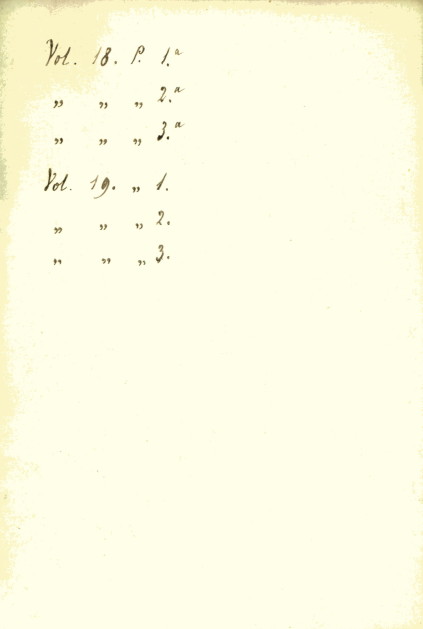 Vol. 18. P. 1.ª
„ „ „ 2.ª
„ „ „ 3.ª
Vol. 19. „ 1.
„ „ „ 2.
„ „ „ 3.